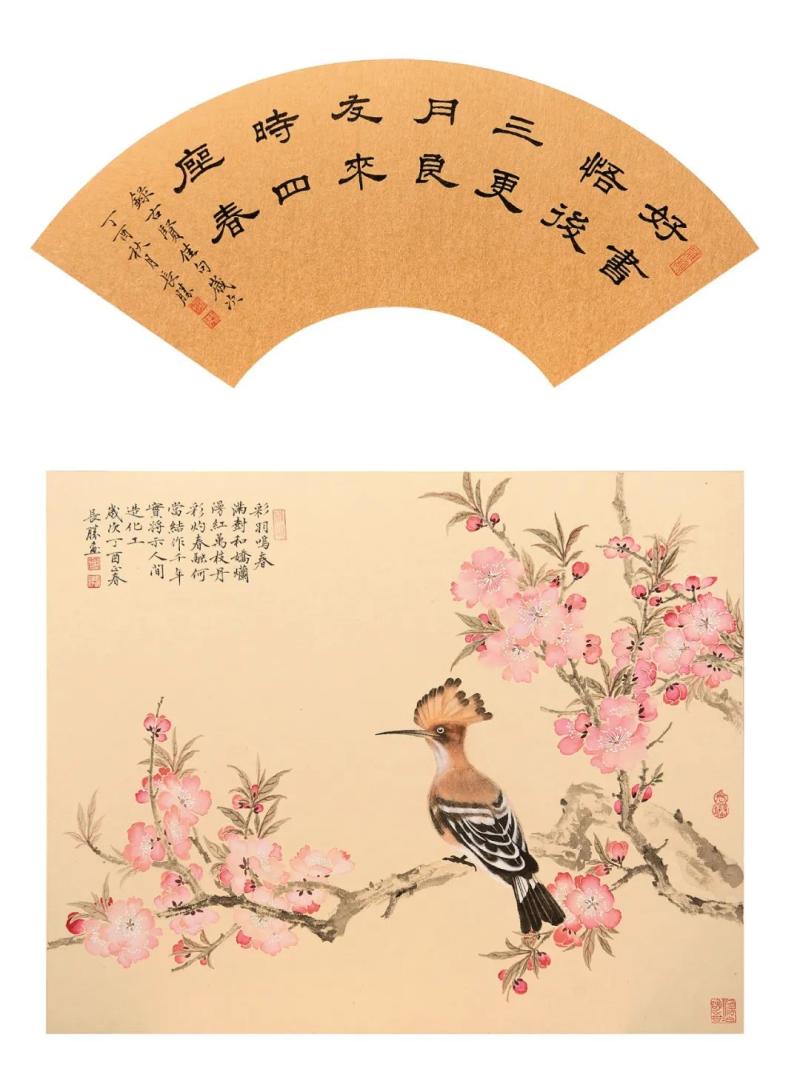 好書
悟後
三更
月良
友來
時四
座春
錄古賢佳句歲次
丁酉秋月長勝
彩羽鳴春
滿封和嬌爛
漫紅萬枝丹
彩灼春融何
當結作千年
實將示人間
造化工
歲次丁酉正春
長勝畫